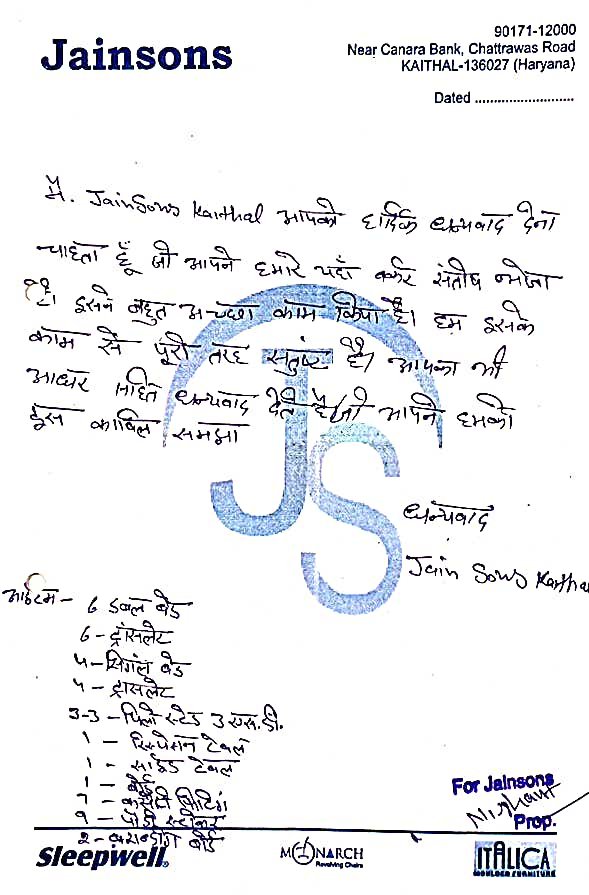 Jainsons
90171-12000
Near Canara Bank, Chattrawas Road
KAITHAL-136027 (Haryana)
Dated ..........................
मै. JainSons Kaithal आपको हार्दिक धन्यवाद देना
चाहता हूँ जो आपने हमारे यहाँ वर्कर संतोष भेजा
है। इसने बहुत अच्छा काम किया है। हम इसके
काम से पूरी तरह सतुंष्ट है। आपका भी
आधर सहित धन्यवाद देते है जो आपने हमको
इस काबिल समझा
JS
धन्यवाद
Jain Sons Kaithal
आईटम - 6 डबल बेड
6 - ट्रांसलेट
4 - सिगंल बेड
4 - ट्रासलेट
3-3 - पिलो स्टेड 3 एस.डी.
1 - रिस्पेसन टेबल
1 - साईड टेबल
1 - बोर्ड
For Jainsons
Nishant
Prop.
2 - बोर्ड
Sleepwell
MONARCH
Revolving Chairs
ITALICA
MOULDED FURNITURE